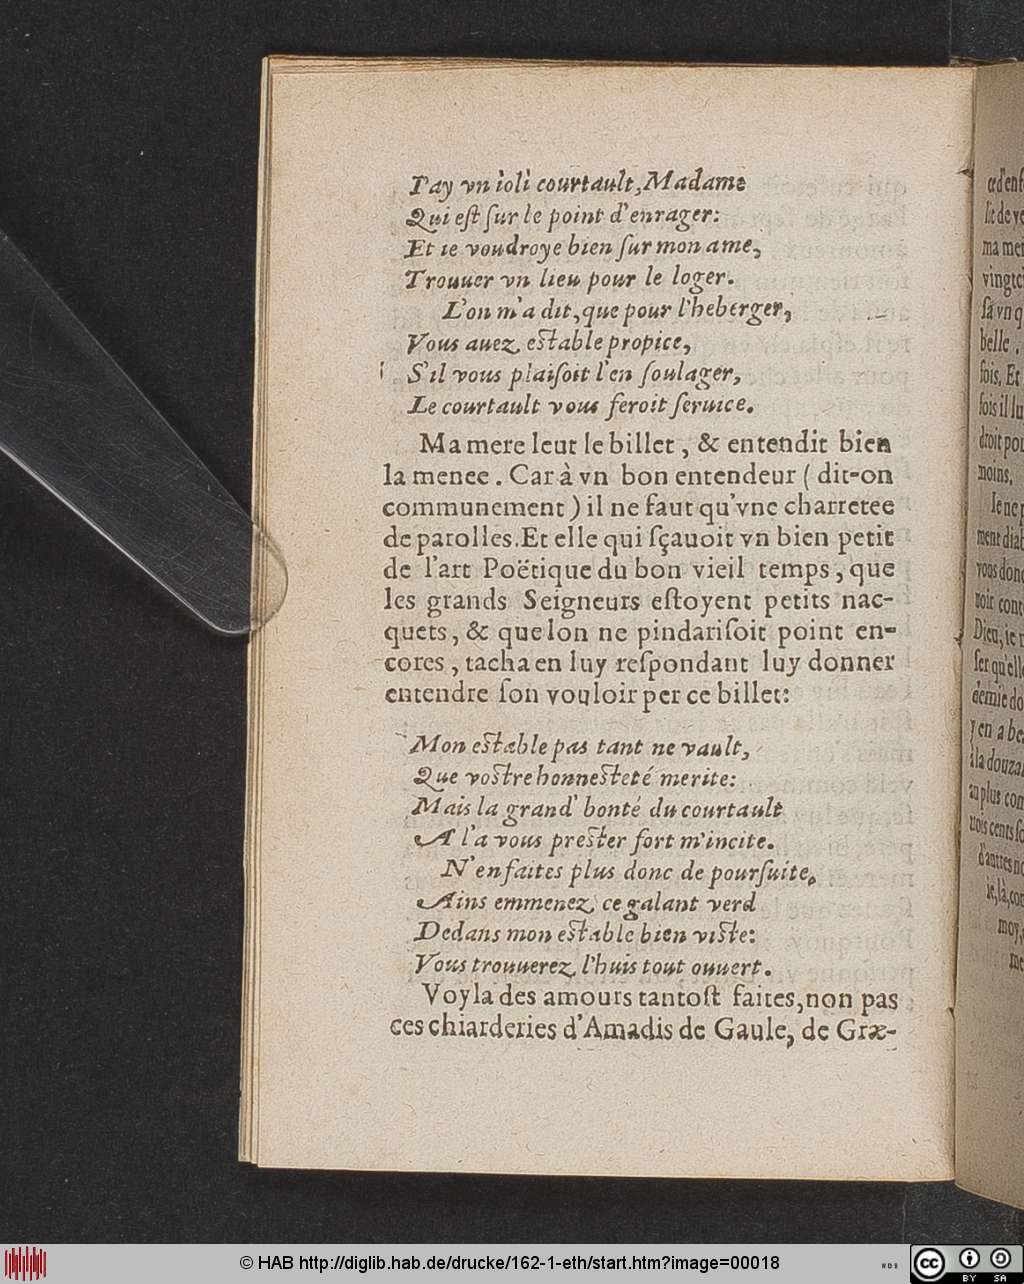 I'ay vn ioli courtault, Madame
Qui est sur le point d'enrager:
Et ie voudroye bien sur mon ame,
Trouuer vn lieu pour le loger.
L'on m'a dit, que pour l'heberger,
Vous auez estable propice,
S'il vous plaisoit l'en soulager,
Le courtault vous feroit seruice.
Ma mere leut le billet, & entendit bien
la menee. Car à vn bon entendeur ( dit-on
communement ) il ne faut qu'vne charretee
de parolles. Et elle qui sçauoit vn bien petit
de l'art Poëtique du bon vieil temps, que
les grands Seigneurs estoyent petits nac-
quets, & que lon ne pindarisoit point en-
cores, tacha en luy respondant luy donner
entendre son vouloir per ce billet:
Mon estable pas tant ne vault,
Que vostre honnesteté merite:
Mais la grand' bonté du courtault
A l'a vous prester fort m'incite.
N'en faites plus donc de poursuite,
Ains emmenez ce galant verd
Dedans mon estable bien viste:
Vous trouuerez l'huis tout ouuert.
Voyla des amours tantost faites, non pas
ces chiarderies d'Amadis de Gaule, de Græ-
ma mer
vingtci
sa vn q
belle.
fois. Et
fois il lu
droit poi
moins.
Ie ne p
ment diab
vous donq
Dieu, ie n
ser qu'elle
demie do
y en a be
à la douza
au plus com
trois cents so
d'autres no
moy,
© HAB http://diglib.hab.de/drucke/162-1-eth/start.htm?image=00018
cc BY SA